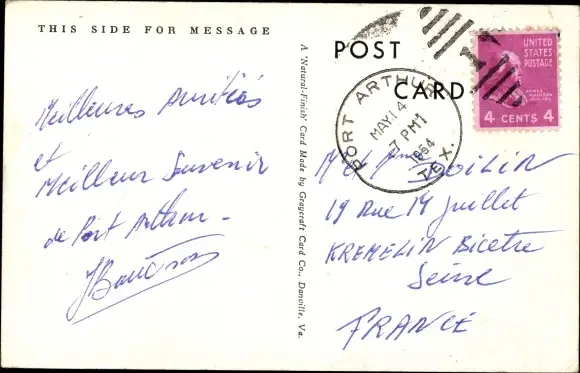 THIS SIDE FOR MESSAGE
Meilleures Amitiés
et
Meilleur Souvenir
de Port Arthur -
A 'Natural-Finish' Card Made by Graycraft Card Co., Danville, Va.
POST
CARD
PORT ARTHUR
MAY 14
7 PM
1954
TEX.
UNITED
STATES
POSTAGE
JAMES MADISON
4 CENTS 4
M et Mme
19 Rue 14 Juillet
KREMELIN Bicetre
Seine
FRANCE